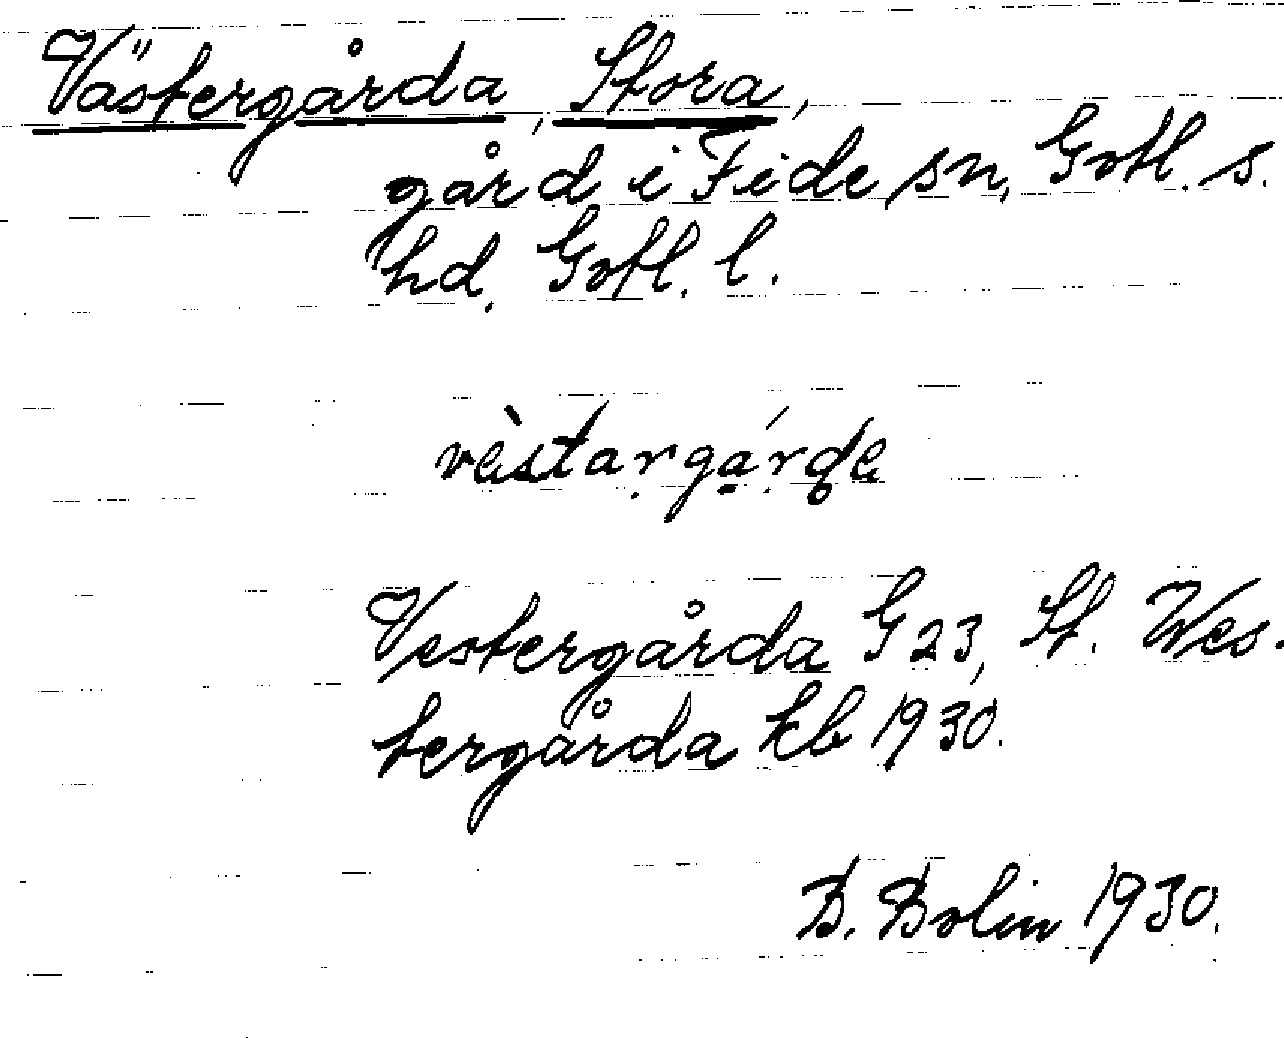 Västergårda, Stora,
gård i Fide sn, Gotl. s.
hd. Gotl. l.
vèstargárde
Vestergårda G 23, St. Wes-
tergårda kb 1930.
B. Bolin 1930.